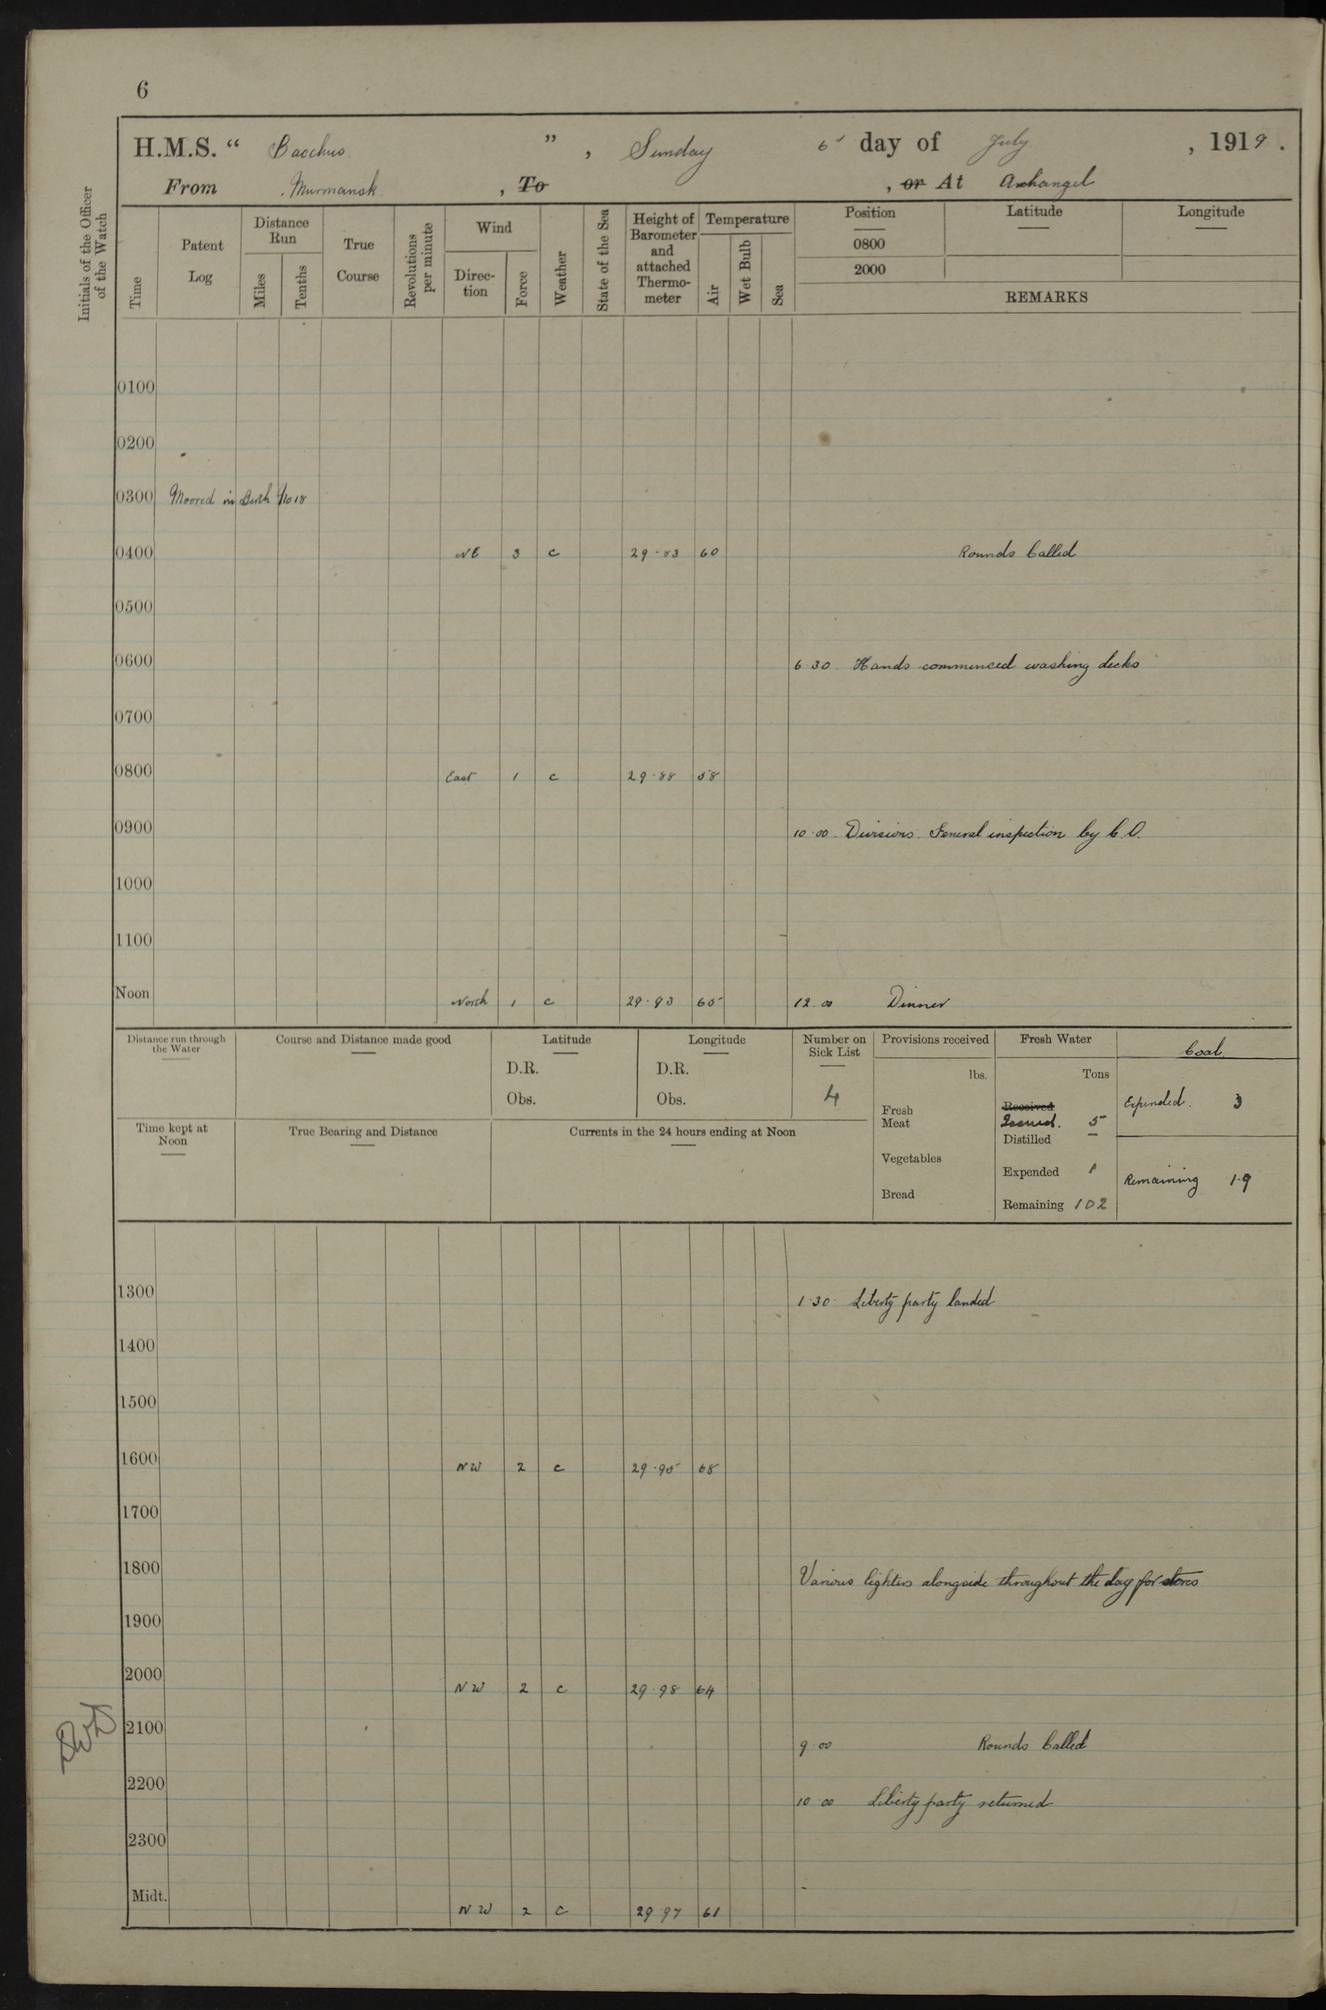 6
H.M.S. “ Bacchus ” , Sunday 6 day of July , 1919 .
From Murmansk , To , or At Archangel
Initials of the Officer of the Watch
Time
Patent Log
Distance Run
Miles
Tenths
True Course
Revolutions per minute
Wind
Direc-tion
Force
Weather
State of the Sea
Height of Barometer and attached Thermo-meter
Temperature
Air
Wet Bulb
Sea
Position Latitude Longitude
0800
2000
REMARKS
0100
0200
0300 Moored in Berth No 18
0400 NE 3 c 29.83 60 Rounds Called
0500
0600 6.30. Hands commenced washing decks
0700
0800 East 1 c 29.88 58
0900 10.00. Divisions. General inspection by C.O.
1000
1100
Noon North 1 c 29.93 65 12.00 Dinner
Distance run through the Water
Course and Distance made good
Latitude
D.R.
Obs.
Longitude
D.R.
Obs.
Number on Sick List
4
Provisions received
lbs.
Fresh Meat
Vegetables
Bread
Fresh Water
Tons
Received
Issued. 5
Distilled –
Expended 1
Remaining 102
Coal
Expended. 3
Remaining 19
Time kept at Noon
True Bearing and Distance
Currents in the 24 hours ending at Noon
1300 1.30. Liberty party landed
1400
1500
1600 NW 2 c 29.95 68
1700
1800 Various lighters alongside throughout the day for stores
1900
2000 NW 2 c 29.98 64
2100 9.00 Rounds Called
2200 10.00 Liberty party returned
2300
Midt. NW 2 c 29.97 61